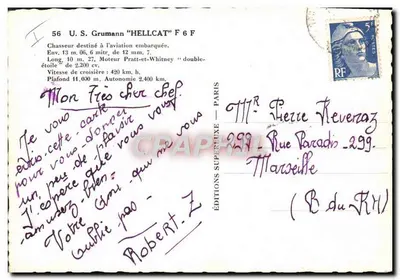 I
56 U. S. Grumann "HELLCAT" F 6 F
Chasseur destiné à l'aviation embarquée.
Env. 13 m. 06, 6 mitr. de 12 mm. 7.
Long. 10 m. 27, Moteur Pratt-et-Whitney "double-
étoile" de 2.200 cv.
Vitesse de croisière : 420 km. h.
Plafond 11.600 m. Autonomie 2.400 km.
Mon Très cher chef.
Je vous
envoie cette carte
pour vous donner
un peu de plaisir
J'espère que vous vous
amusez bien.
Votre ami qui ne vous
oublie pas
Robert. Z
ÉDITIONS SUPERLUXE - PARIS
5F
RF
Mr Pierre Revernaz
299 - Rue Paradis - 299.
Marseille
(B du RH)